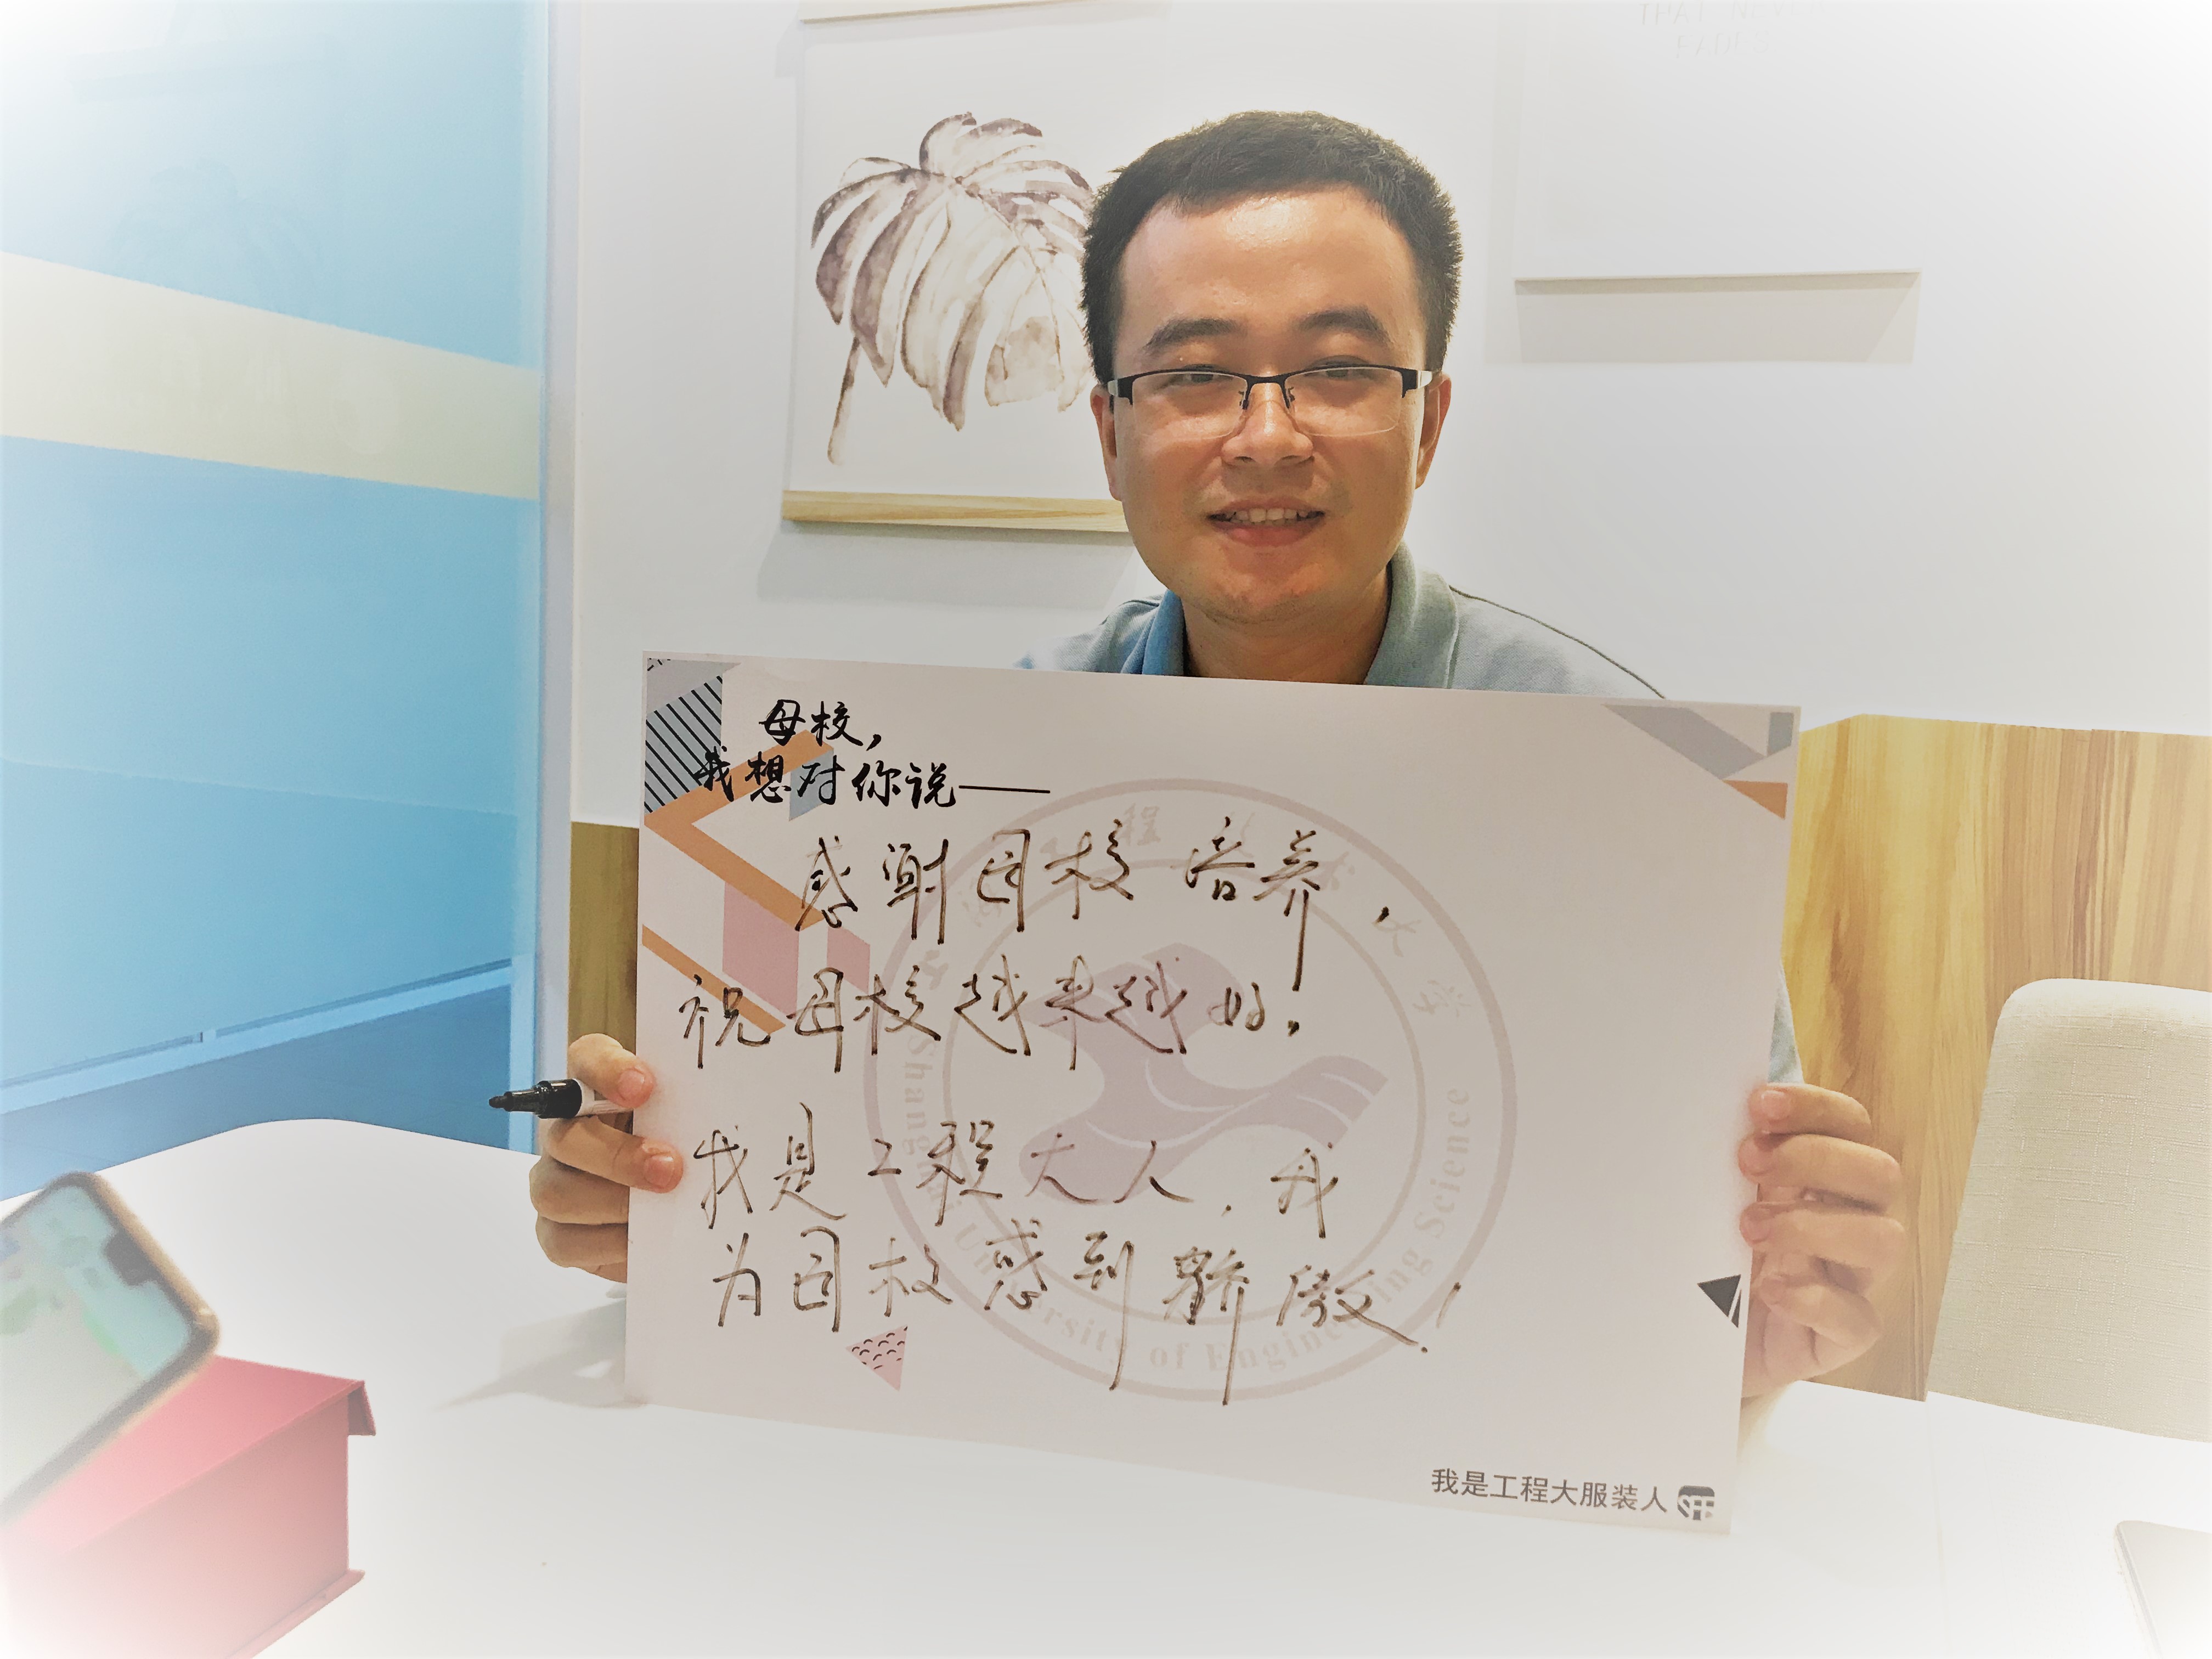 THAT NEVER
FADES
母校，
我想对你说——
感谢母校培养，
祝母校越来越好，
我是工程大人，我
为母校感到骄傲！
上海工程技术大学
Shanghai University of Engineering Science
我是工程大服装人